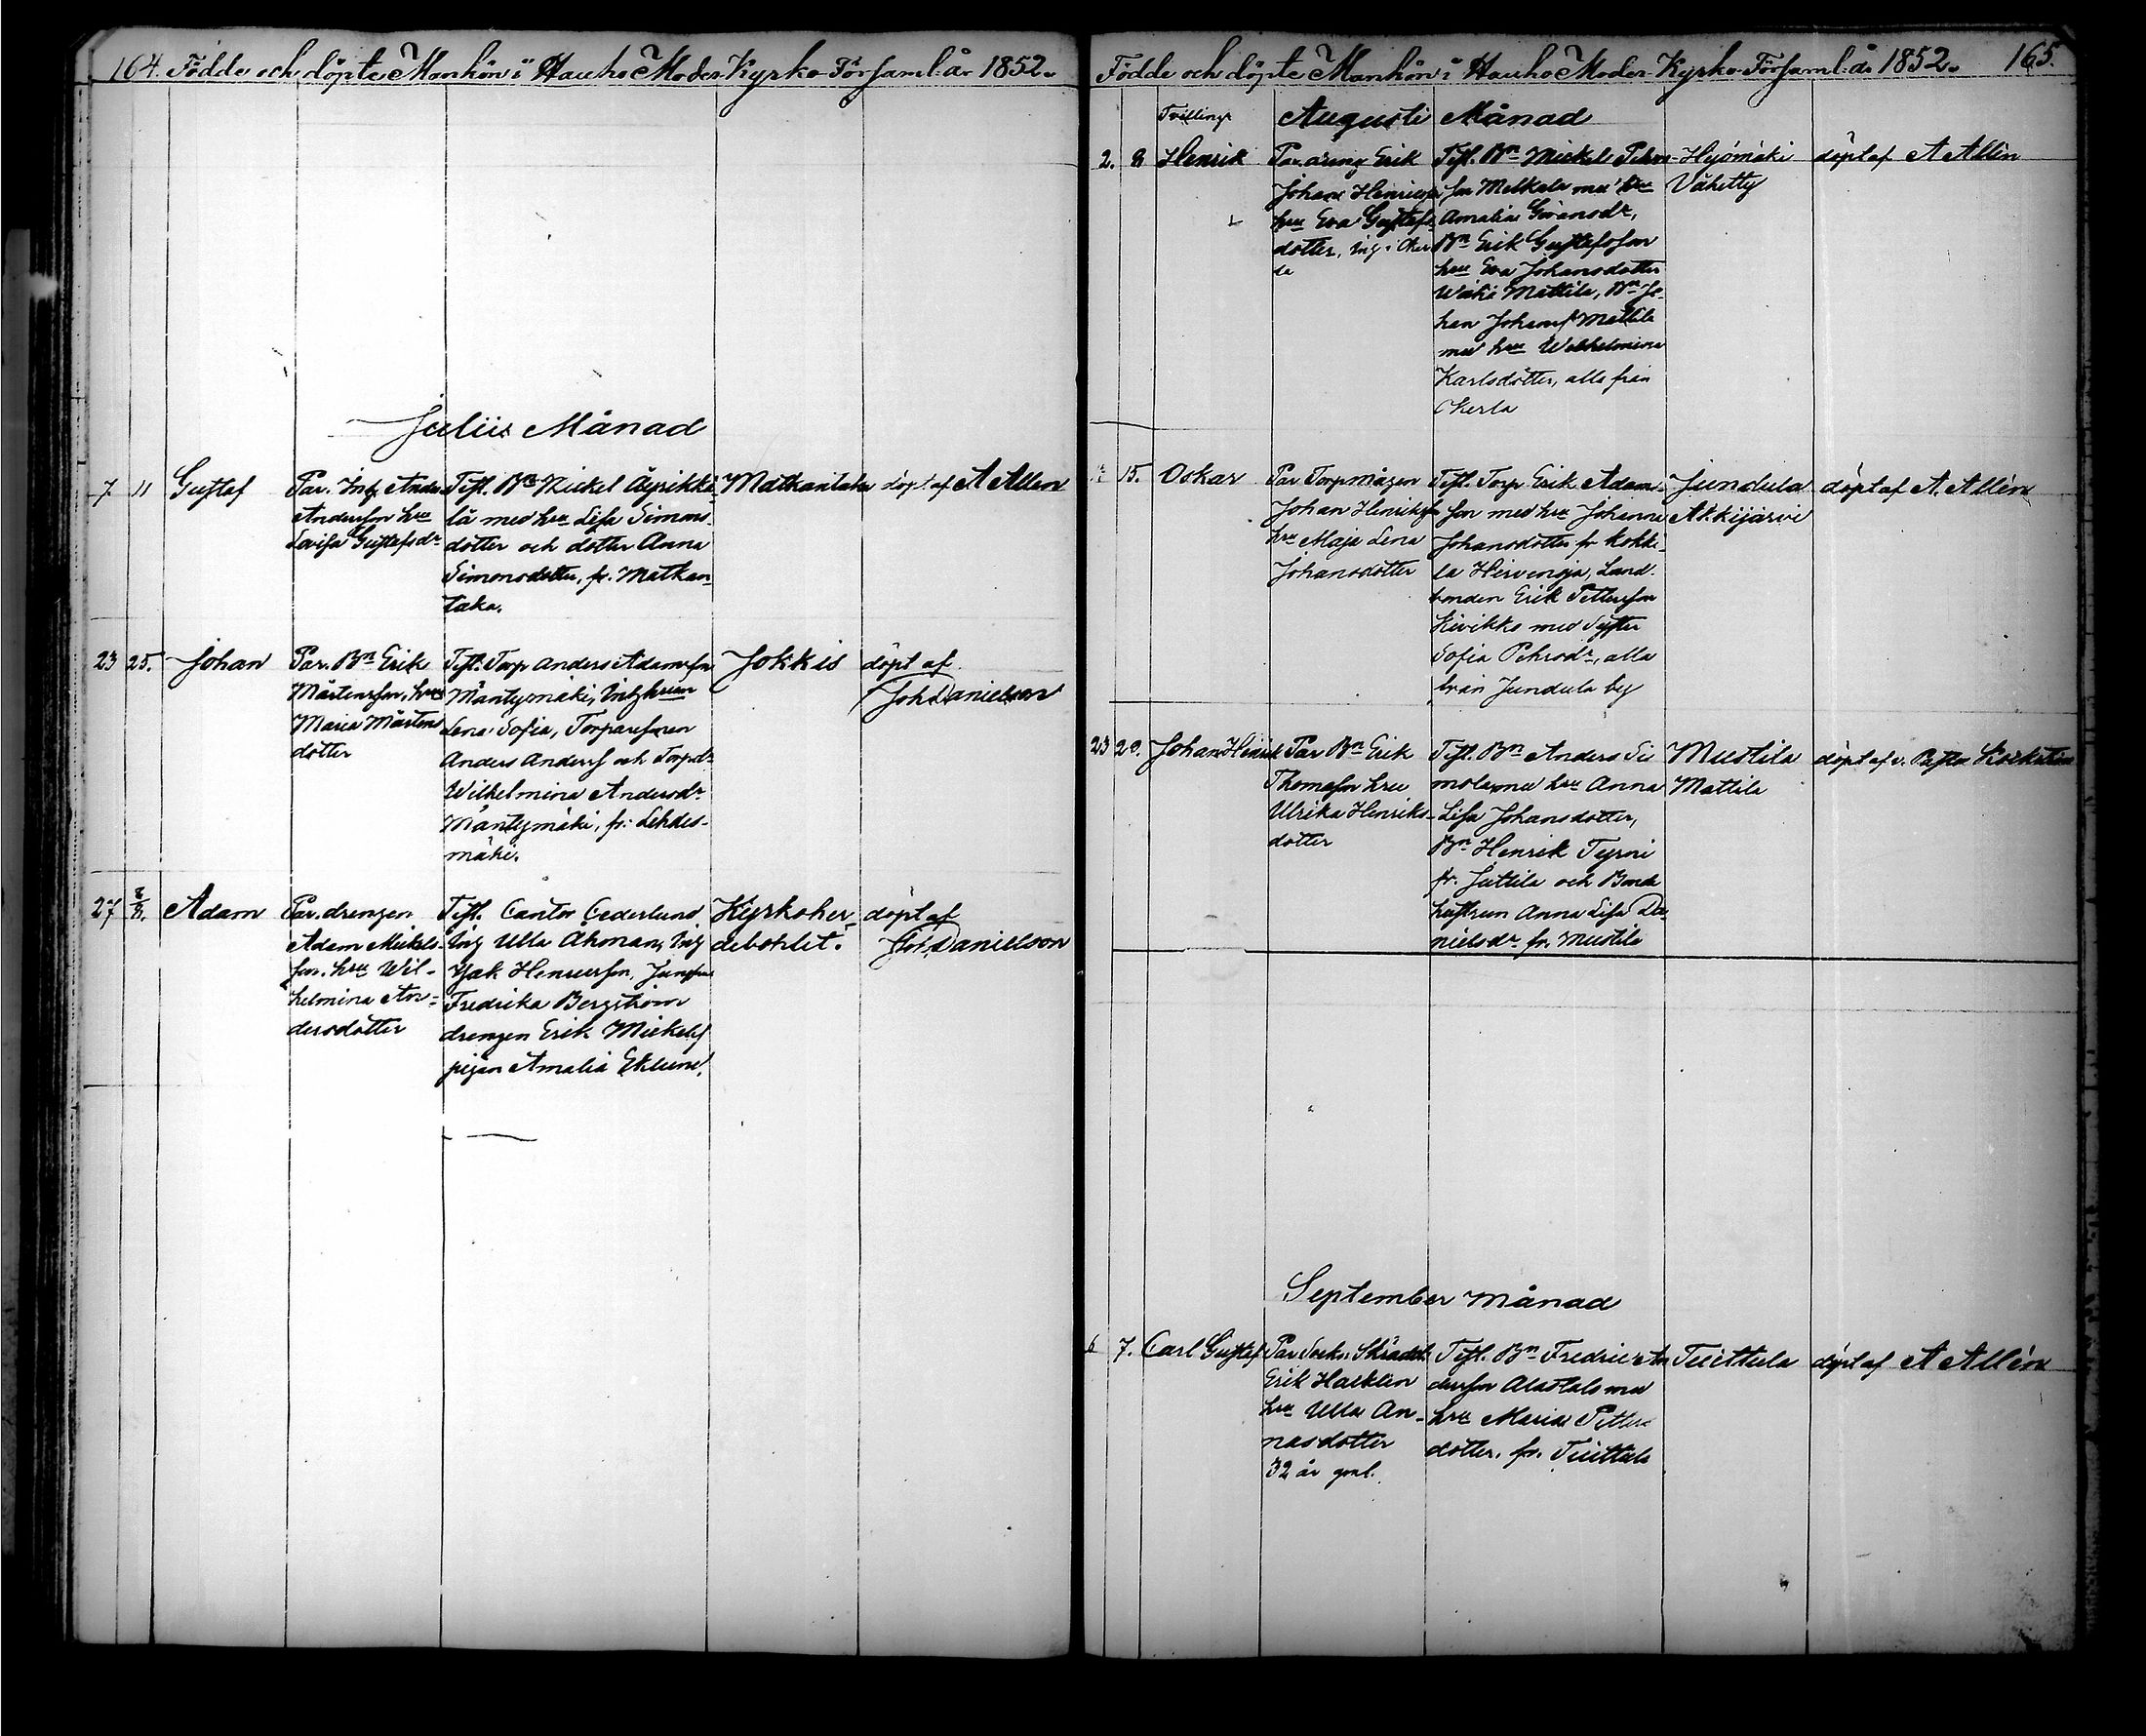 164. Födde och döpte Mankön i Hauho Moder Kyrko Församl. år 1852.
Julii Månad
7 11 Gustaf
Par. Inh. Anders
Andersson hru
Lovisa Gustafsdr
Test. Bn Mickel Äyrikkä
lä med hru Lisa Simons-
dotter och dotter Anna
Simonsdotter, fr. Matkan-
taka.
Matkantaka
döpt af A Allén
23 25. Johan
Par. Bn Erik
Mårtensson, hru
Maria Mårtens
dotter
Test. Torp Anders Adamsson
Mäntymäki, Inhhrun
Lena Sofia, Torparesonen
Anders Anderss och Torpdr
Wilhelmina Andersdr
Mäntymäki, fr. Lehdes-
mäki.
Jokkis
döpt af
Joh Danielson
27 8/8. Adam
Par. drengen
Adam Mickels-
son. hru Wil-
helmina An-
dersdotter
Test. Cantor Cederlund
Inh Ulla Åkman, Inh
Isak Henricsson, Jungfru
Fredrika Bergström
drengen Erik Mickelss
pigan Amalia Eklund.
Kyrkoher
debohlet.
döpt af
Joh Danielson
Födde och döpte Mankön i Hauho Moder Kyrko Församl. år 1852. 165.
Augusti Månad
Tvilling
2. 8 Henrik
Par. Erik
Johan Henricsson
hru Eva Gustafs
dotter, Inh i Oker
la
Test. Bn Mickel Pehrs-
son Melkala med hru
Amalia Göransdr,
Bn Erik Gustafsson
hru Eva Johansdotter
Mattila, Bn Jo-
han Johanss Mattila
med hru Wilhelmina
Karlsdotter, alla från
Okerla
Hyömäki
Vähetty
döpt af A Allén
15. Oskar
Par Torpmågen
Johan Henriksson
hru Maja Lena
Johansdotter
Test. Torp Erik Adam-
son med hru Johanna
Johansdotter fr Kokki-
la Hirvenoja, Land-
bonden Erik Pettersson
Kivikko med Syster
Sofia Pehrsdr, alla
från Jundula by
Jundula
Alkijärvi
döpt af A. Allén
23 29. Johan Henrik
Par Bn Erik
Thomasson hru
Ulrika Henriks-
dotter
Test. Bn Anders Si
mola med hru Anna
Lisa Johansdotter,
Bn Henrik Tyrni
fr. Juttila och Bonde
hustrun Anna Lisa Da
nielsdr fr. Mustila
Mustila
Mattila
döpt af v. Pastor
September Månad
6 7. Carl Gustaf
Par Sockn. Skrädd.
Erik Hacklin
hru Ulla An-
nasdotter
32 år gml.
Test. Bn Fredric An
dersson Alastalo med
hru Maria Petters
dotter. fr. Tuittula
Tuittula
döpt af A Allén